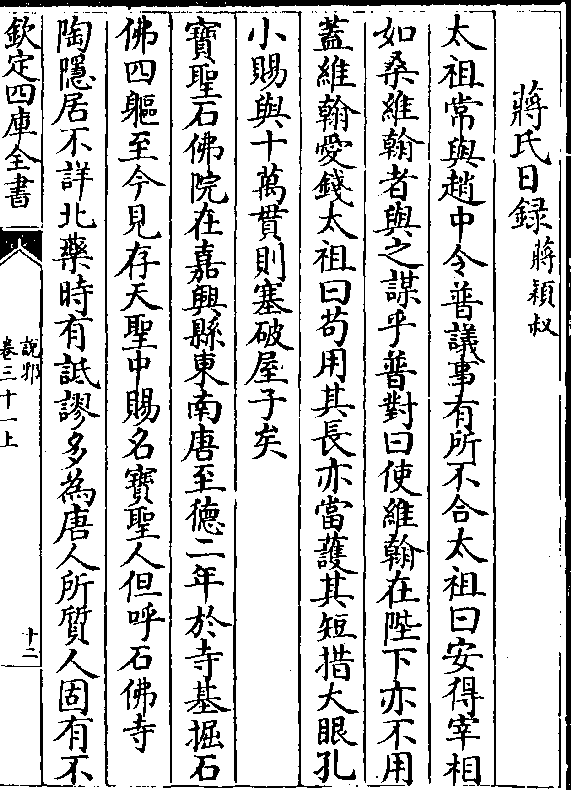 蔣氏日録 蔣穎叔
太祖常與趙中令普議事有所不合太祖曰安得宰相
如桑維翰者與之謀乎普對曰使維翰在陛下亦不用
蓋維翰愛錢太祖曰茍用其長亦當䕶其短措大眼孔
小賜與十萬貫則塞破屋子矣
寶聖石佛院在嘉興縣東南唐至德二年於寺基掘石
佛四軀至今見存天聖中賜名寶聖人但呼石佛寺
陶隱居不詳北藥時有詆謬多為唐人所質人固有不
欽定四庫全書
說郛
卷三十一上
十二